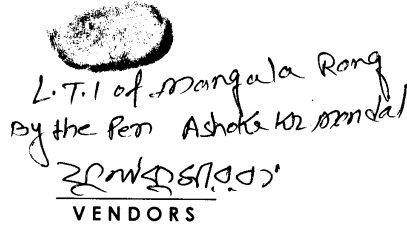 L.T.I of Mangala Rong
By the Pen Ashoke Kr Mondal
ফুলকুমার রং
VENDORS